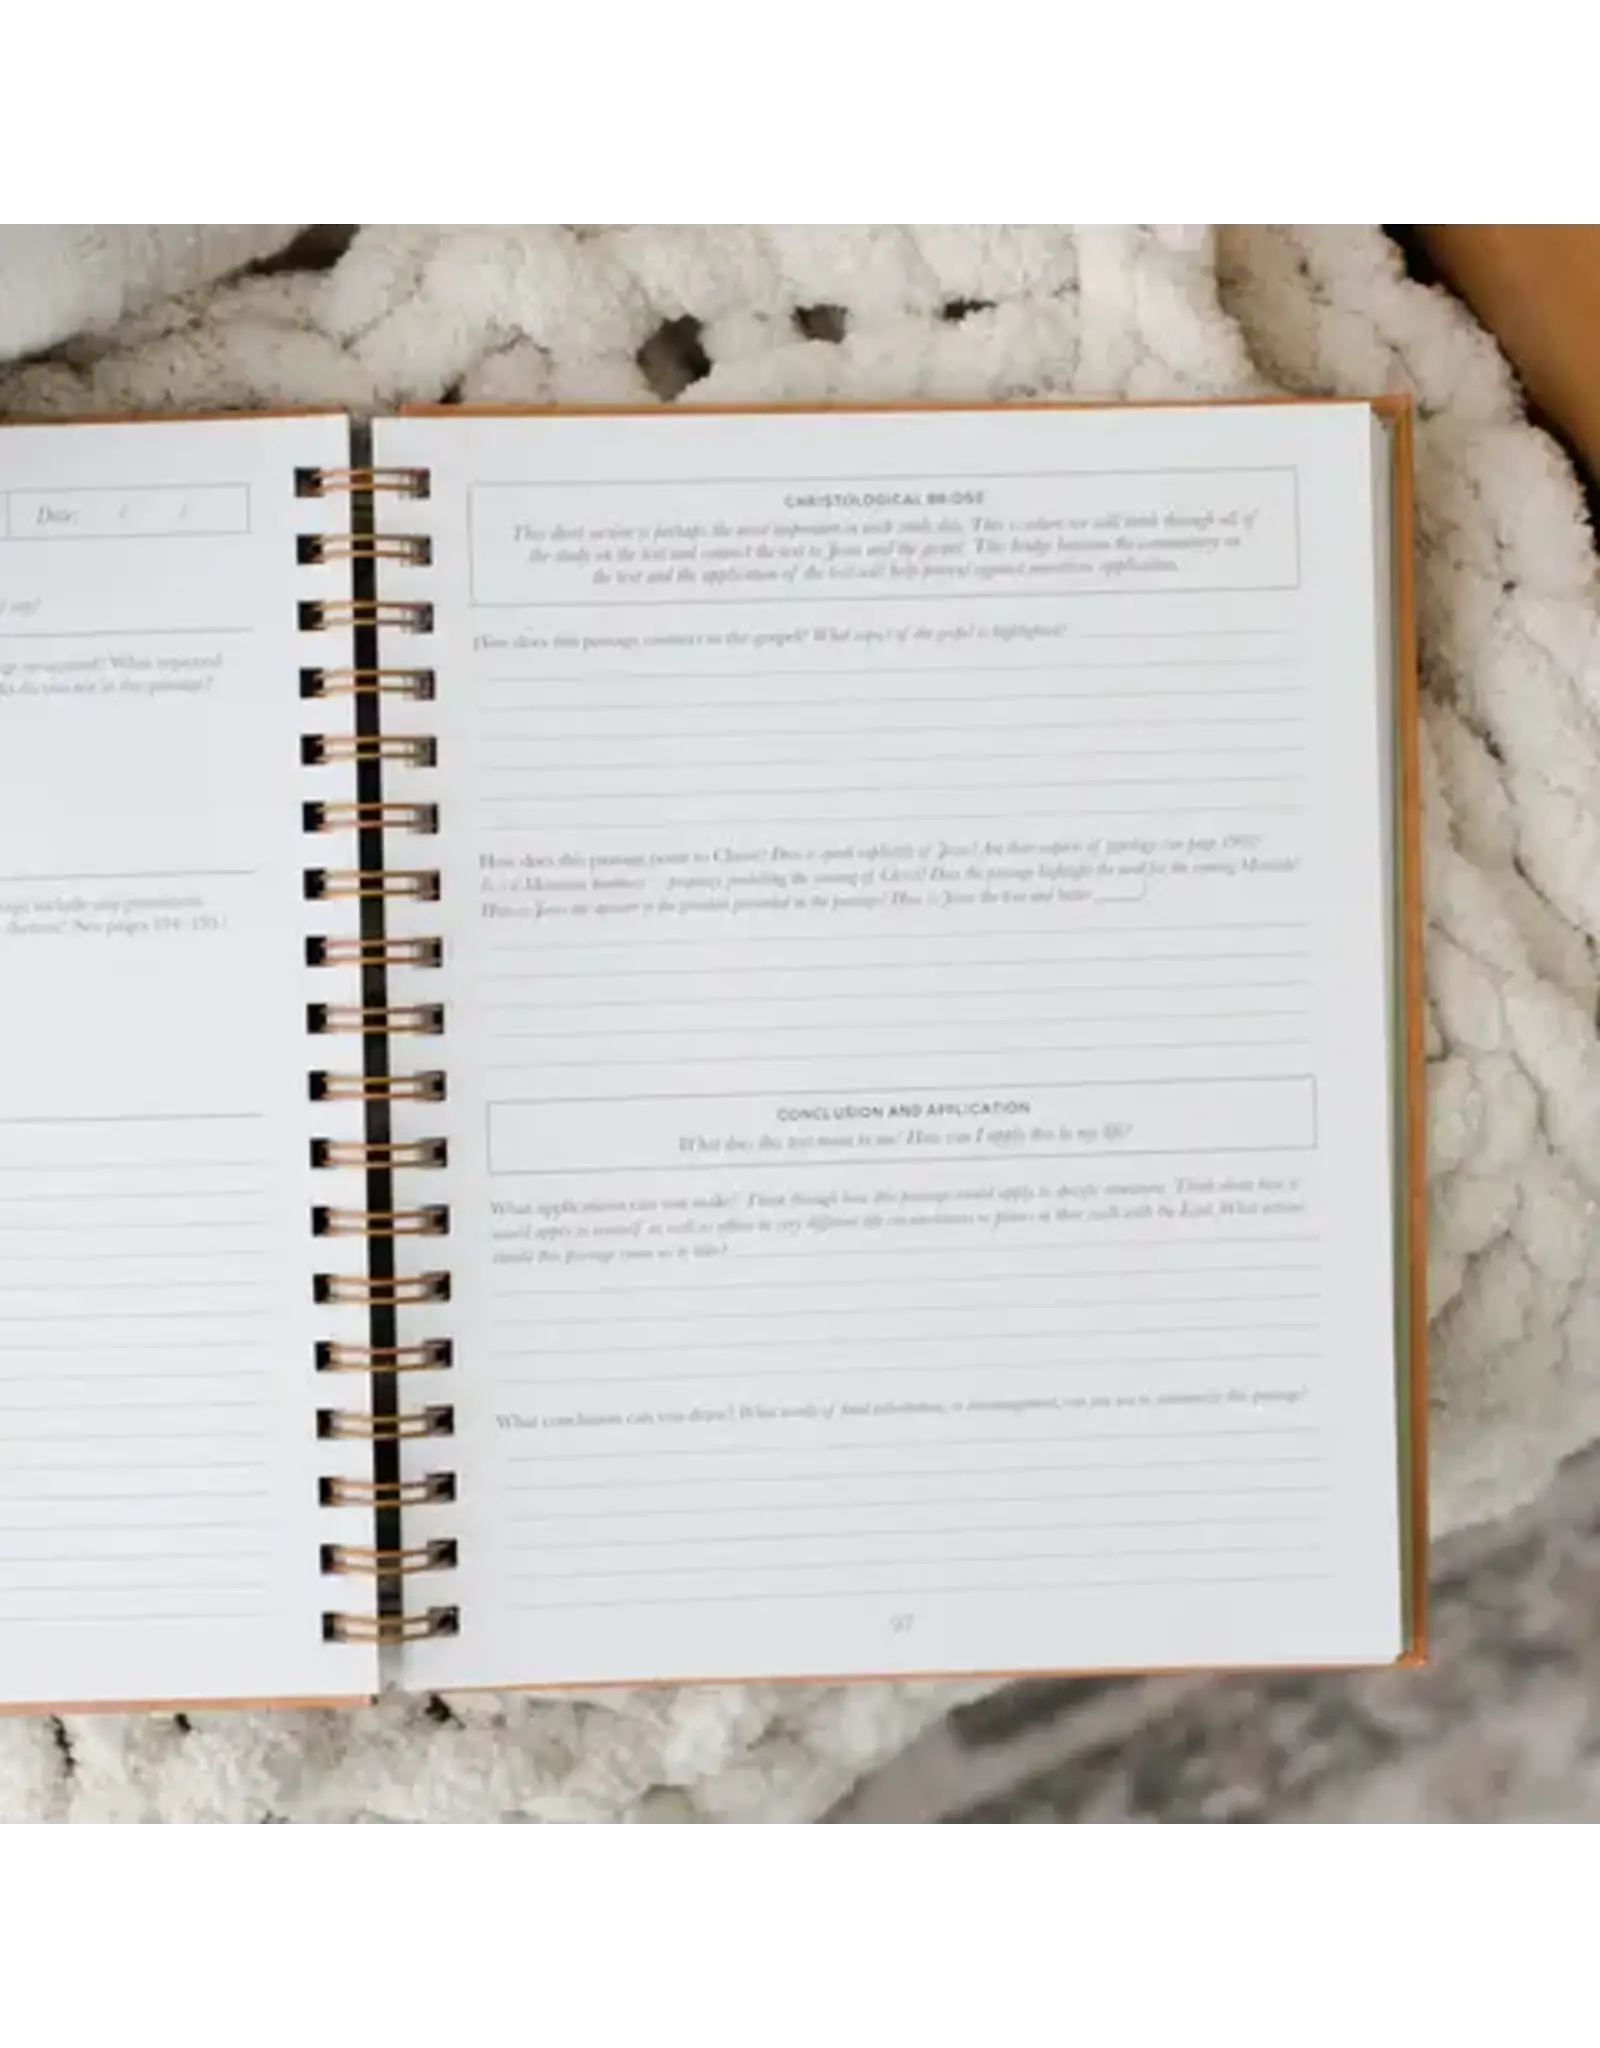 Date: / /
say?
repeated? What repeated
in the passage?
include any prominent
themes? See pages 194-195.
CHRISTOLOGICAL BRIDGE
This short section is perhaps the most important in each study day. This is where we will think through all of
the study on the text and connect the text to Jesus and the gospel. The bridge between the commentary on
the text and the application of the text will help prevent against moralistic application.
How does this passage connect to the gospel? What aspect of the gospel is highlighted?
How does this passage point to Christ? Does it speak explicitly of Jesus? Are there aspects of typology (see page 190)?
Is it a Messianic prophecy — prophecy predicting the coming of Christ? Does the passage highlight the need for the coming Messiah?
How is Jesus the answer to the problem presented in the passage? How is Jesus the true and better
CONCLUSION AND APPLICATION
What does this text mean to me? How can I apply this to my life?
What applications can you make? Think through how this passage would apply to specific situations. Think about how it
would apply to yourself as well as others in very different life circumstances or places in their walk with the Lord. What actions
should this passage cause us to take?
What conclusion can you draw? What words of final exhortation, or encouragement, can you use to summarize this passage?
97